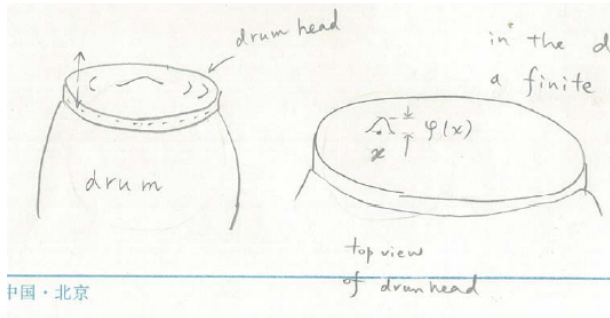 drum head
in the d
a finite
φ(x)
x
drum
top view
of drumhead
中国・北京